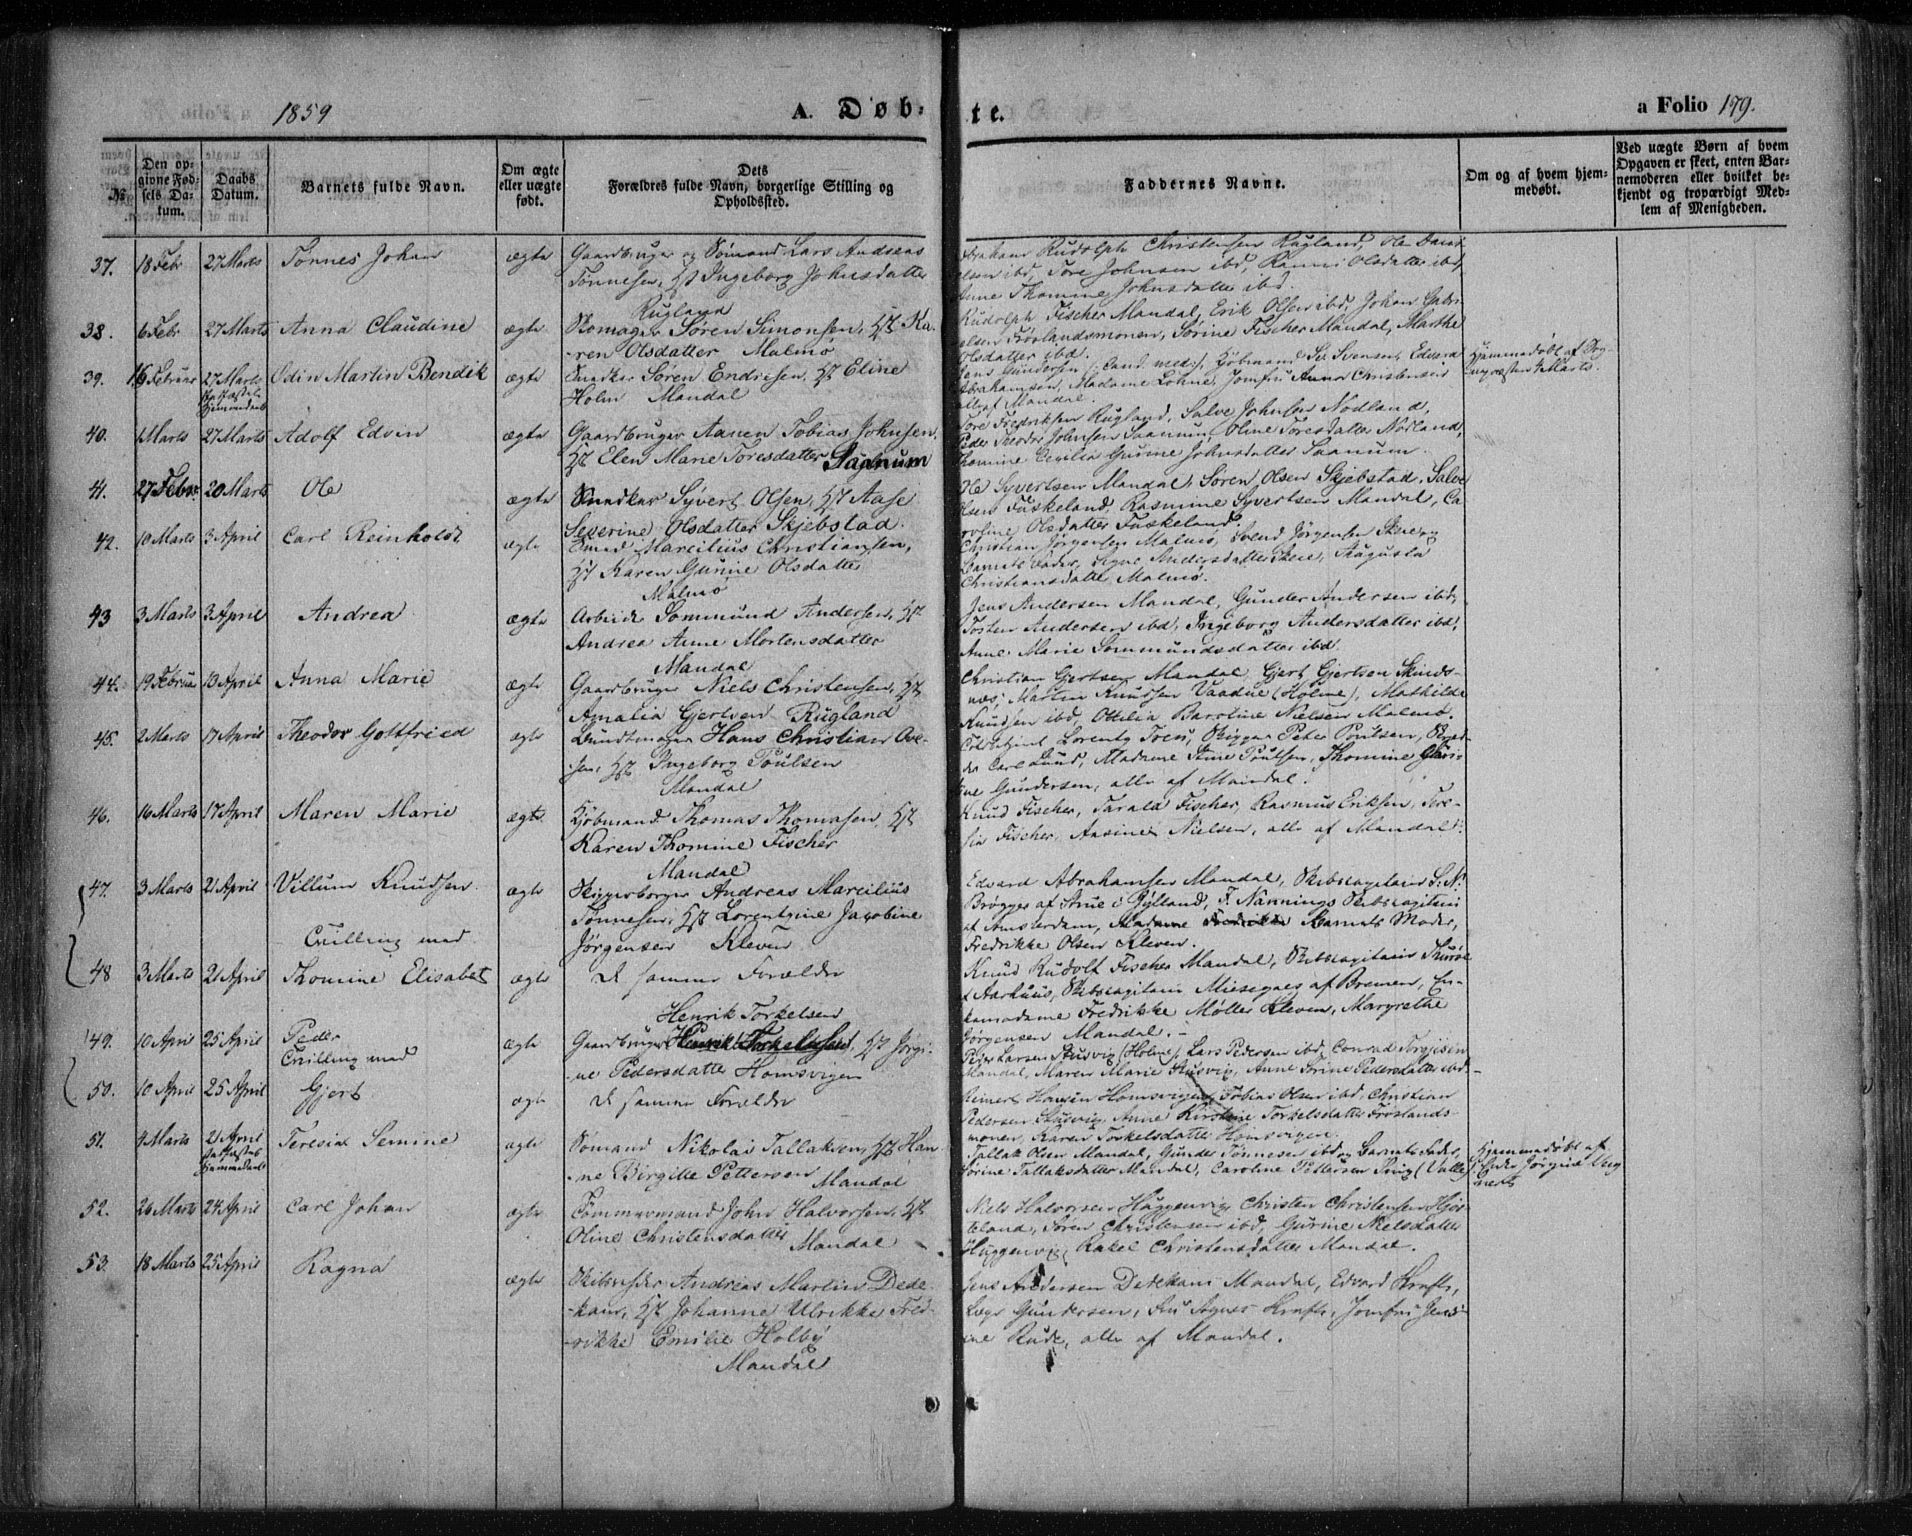 1859 A. Døb- te. a Folio 179.
№
Den opgivne Fødsels Datum.
Daabs Datum.
Barnets fulde Navn.
Om ægte eller uægte født.
Dets Forældres fulde Navn, borgerlige Stilling og Opholdssted.
Faddernes Navne.
Om og af hvem hjemmedøbt.
Ved uægte Børn af hvem Opgaven er skeet, enten Barnemoderen eller hvilket bekjendt og troværdigt Medlem af Menigheden.
37. 18 Febr 27 Marts Tønnes Johan ægte Gaardbruger og Sømand Lars Andreas
Tønnesen, Hst Ingeborg Johnsdatter
Rugland
Abraham Rudolph Christensen Rugland, Ole Dani-
elsen ibd, Tore Johnsen ibd, Rannei Olsdatter ibd,
Anne Thomine Johnsdatter ibd.
38. 6 Febr 27 Marts Anna Claudine ægte Skomager Søren Simonsen, Hst Ka-
-ren Olsdatter Malmø
Rudolph Fischer Mandal, Erik Olsen ibd, Johan Gabri-
elsen Frøslandsmonen, Sørine Fischer Mandal, Marthe
Olsdatter ibd.
39. 16 Februar 27 Marts Stadfæstet Hjemmedaab Odin Martin Bendik ægte Snedker Søren Endresen, Hst Eline
Holm Mandal
Jens Gundersen (Cand. med.), Kjøbmand Svensen, Edvard
Abrahamsen, Madame Lohne, Jomfru Anna Christensen
alle af Mandal.
Hjemmedøbt af Sog-
nepræsten 4 Marts.
40. 1 Marts 27 Marts Adolf Edvin ægte Gaardbruger Aanen Tobias Johnsen,
Hst Elen Marie Toresdatter Saanum
Tore Fredriksen Rugland, Salve Johnsen Nodland,
Peder Theodor Johnsen Saanum, Oline Toresdatter Nodland,
Thomine Cecilia Gurine Johnsdatter Saanum.
41. 27 Febr 20 Marts Ole ægte Snedker Syvert Olsen, Hst Aase
Severine Olsdatter Skjebstad.
Ole Syvertsen Mandal, Søren Olsen Skjebstad, Salve
Olsen Fuskeland, Rasmine Syvertsen Mandal, Ca-
roline Olsdatter Fuskeland.
42. 10 Marts 3 April Carl Reinholdt ægte Smed Marcilius Christiansen,
Hst Karen Gurine Olsdatter
Malmø
Christian Jørgensen Malmø, Svend Jørgensen Skeie,
Barnets Fader, Signe Andersdatter Skeie, Augusta
Christiansdatter Malmø.
43 3 Marts 3 April Andrea ægte Arbeider Sommund Andersen, Hst
Andrea Anne Mortensdatter
Mandal
Jens Andersen Mandal, Gunder Andersen ibd,
Tosten Andersen ibd, Ingeborg Andersdatter ibd,
Anne Marie Sommundsdatter ibd.
44. 19 Februar 13 April Anna Marie ægte Gaardbruger Niels Christensen, Hst
Amalia Gjertsen Rugland
Christian Gjertsen Mandal, Gjert Gjertsen Skinds-
næs, Martin Knudsen Vaadne (Holme), Mathilde
Knudsen ibd, Ottilia Baroline Nielsen Malmø.
45. 2 Marts 17 April Theodor Gottfried ægte Bundtmager Hans Christian Ove-
sen, Hst Ingeborg Poulsen
Mandal
Lorentz, Skipper Peter Poulsen,
Carl Lund, Madame Anne Poulsen, Thomine
Gundersen, alle af Mandal.
46. 16 Marts 17 April Maren Marie ægte Kjøbmand Thomas Thomasen, Hst
Karen Thomine Fischer
Mandal
Knud Fischer, Tarald Fischer, Rasmus Eriksen, Tere-
sia Fischer, Aasine Nielsen, alle af Mandal.
47. 3 Marts 21 April Villum Knudsen ægte Skipperborger Andreas Marcilius
Tønnesen, Hst Lorentzine Jacobine
Jørgensen Kleven
Tvilling med
Edvard Abrahamsen Mandal, Skibscapitain S. N.
Brøgger af Arne i Jylland, F. Nannings Skibscapitain
af Amsterdam, Madame Fredrikke Barnets Moder,
Fredrikke Olsen Kleven.
48 3 Marts 21 April Thomine Elisabet ægte De samme Forældre
Knud Rudolf Fischer Mandal, Skibscapitain
af Aarhuus, Skibscapitain Miesegaes af Bremen, En-
kemadame Fredrikke Møller Kleven, Margrethe
Jørgensen Mandal.
49. 10 April 25 April Peder ægte Gaardbruger Henrik Torkelsen, Hst Jørgi-
ne Pedersdatter Homsvigen
Henrik Torkelsen
Tvilling med
Peder Larsen Stusvig (Holme), Lars Pedersen ibd, Conrad Torgjusen
Mandal, Maren Marie Stusvig, Anne Trine Pedersdatter ibd.
50. 10 April 25 April Gjert ægte De samme Forældre
Reinert Hansen Homsvigen, Tobias Olsen ibd, Christian
Pedersen Stusvig, Anne Kirstine Torkelsdatter Frøslands-
monen, Karen Torkelsdatter Homsvigen.
51. 4 Marts 21 April Stadfæstet Hjemmedaab Teresia Semine ægte Sømand Nikolai Tallaksen, Hst Han-
-ne Birgitte Pettersen
Mandal
Tallak Olsen Mandal, Gunder Tønnesen ibd og Barnets Fader,
Sørine Tallaksdatter Mandal, Caroline Pettersen (Valle)
Hjemmedøbt af
Enke Jørgine
52. 26 Marts 24 April Carl Johan ægte Tømmermand John Halvorsen, Hst
Oline Christensdatter Mandal
Niels Halvorsen Huggenvig, Christen Christensen
Søren Christensen ibd, Gurine Nielsdatter
Huggenvig, Rakel Christensdatter Mandal.
53. 18 Marts 25 April Ragna ægte Skibsreder Andreas Martin Dede-
-kam, Hst Johanne Ulrikke Fred-
-rikke Emilie Holby
Mandal
Jens Andersen Dedekam Mandal, Edvard Kraft,
Læge Gundersen, Fru Agnes Kraft, Jomfru Jensi-
ne Rude, alle af Mandal.